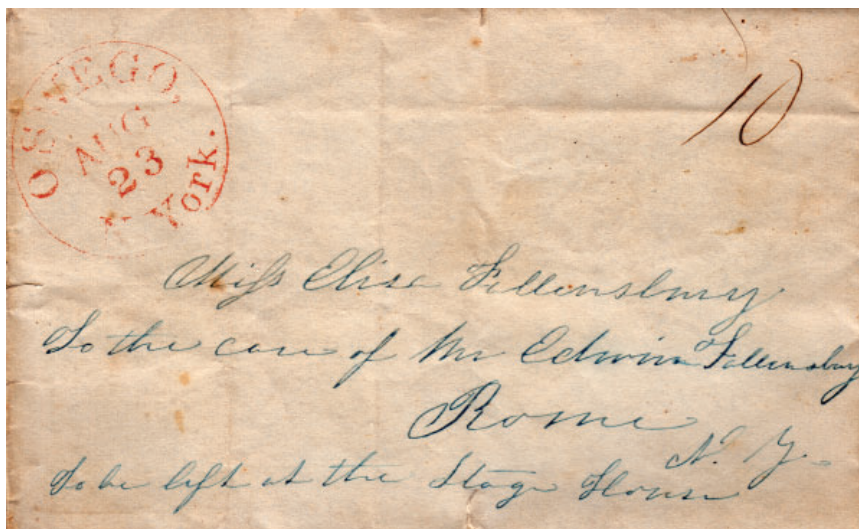 OSWEGO,
AUG
23
N. York.
10
Miss Elisa Fellensbury
To the care of Mr Edwin Fellensbury
Rome
N. Y.
To be left at the Stage House